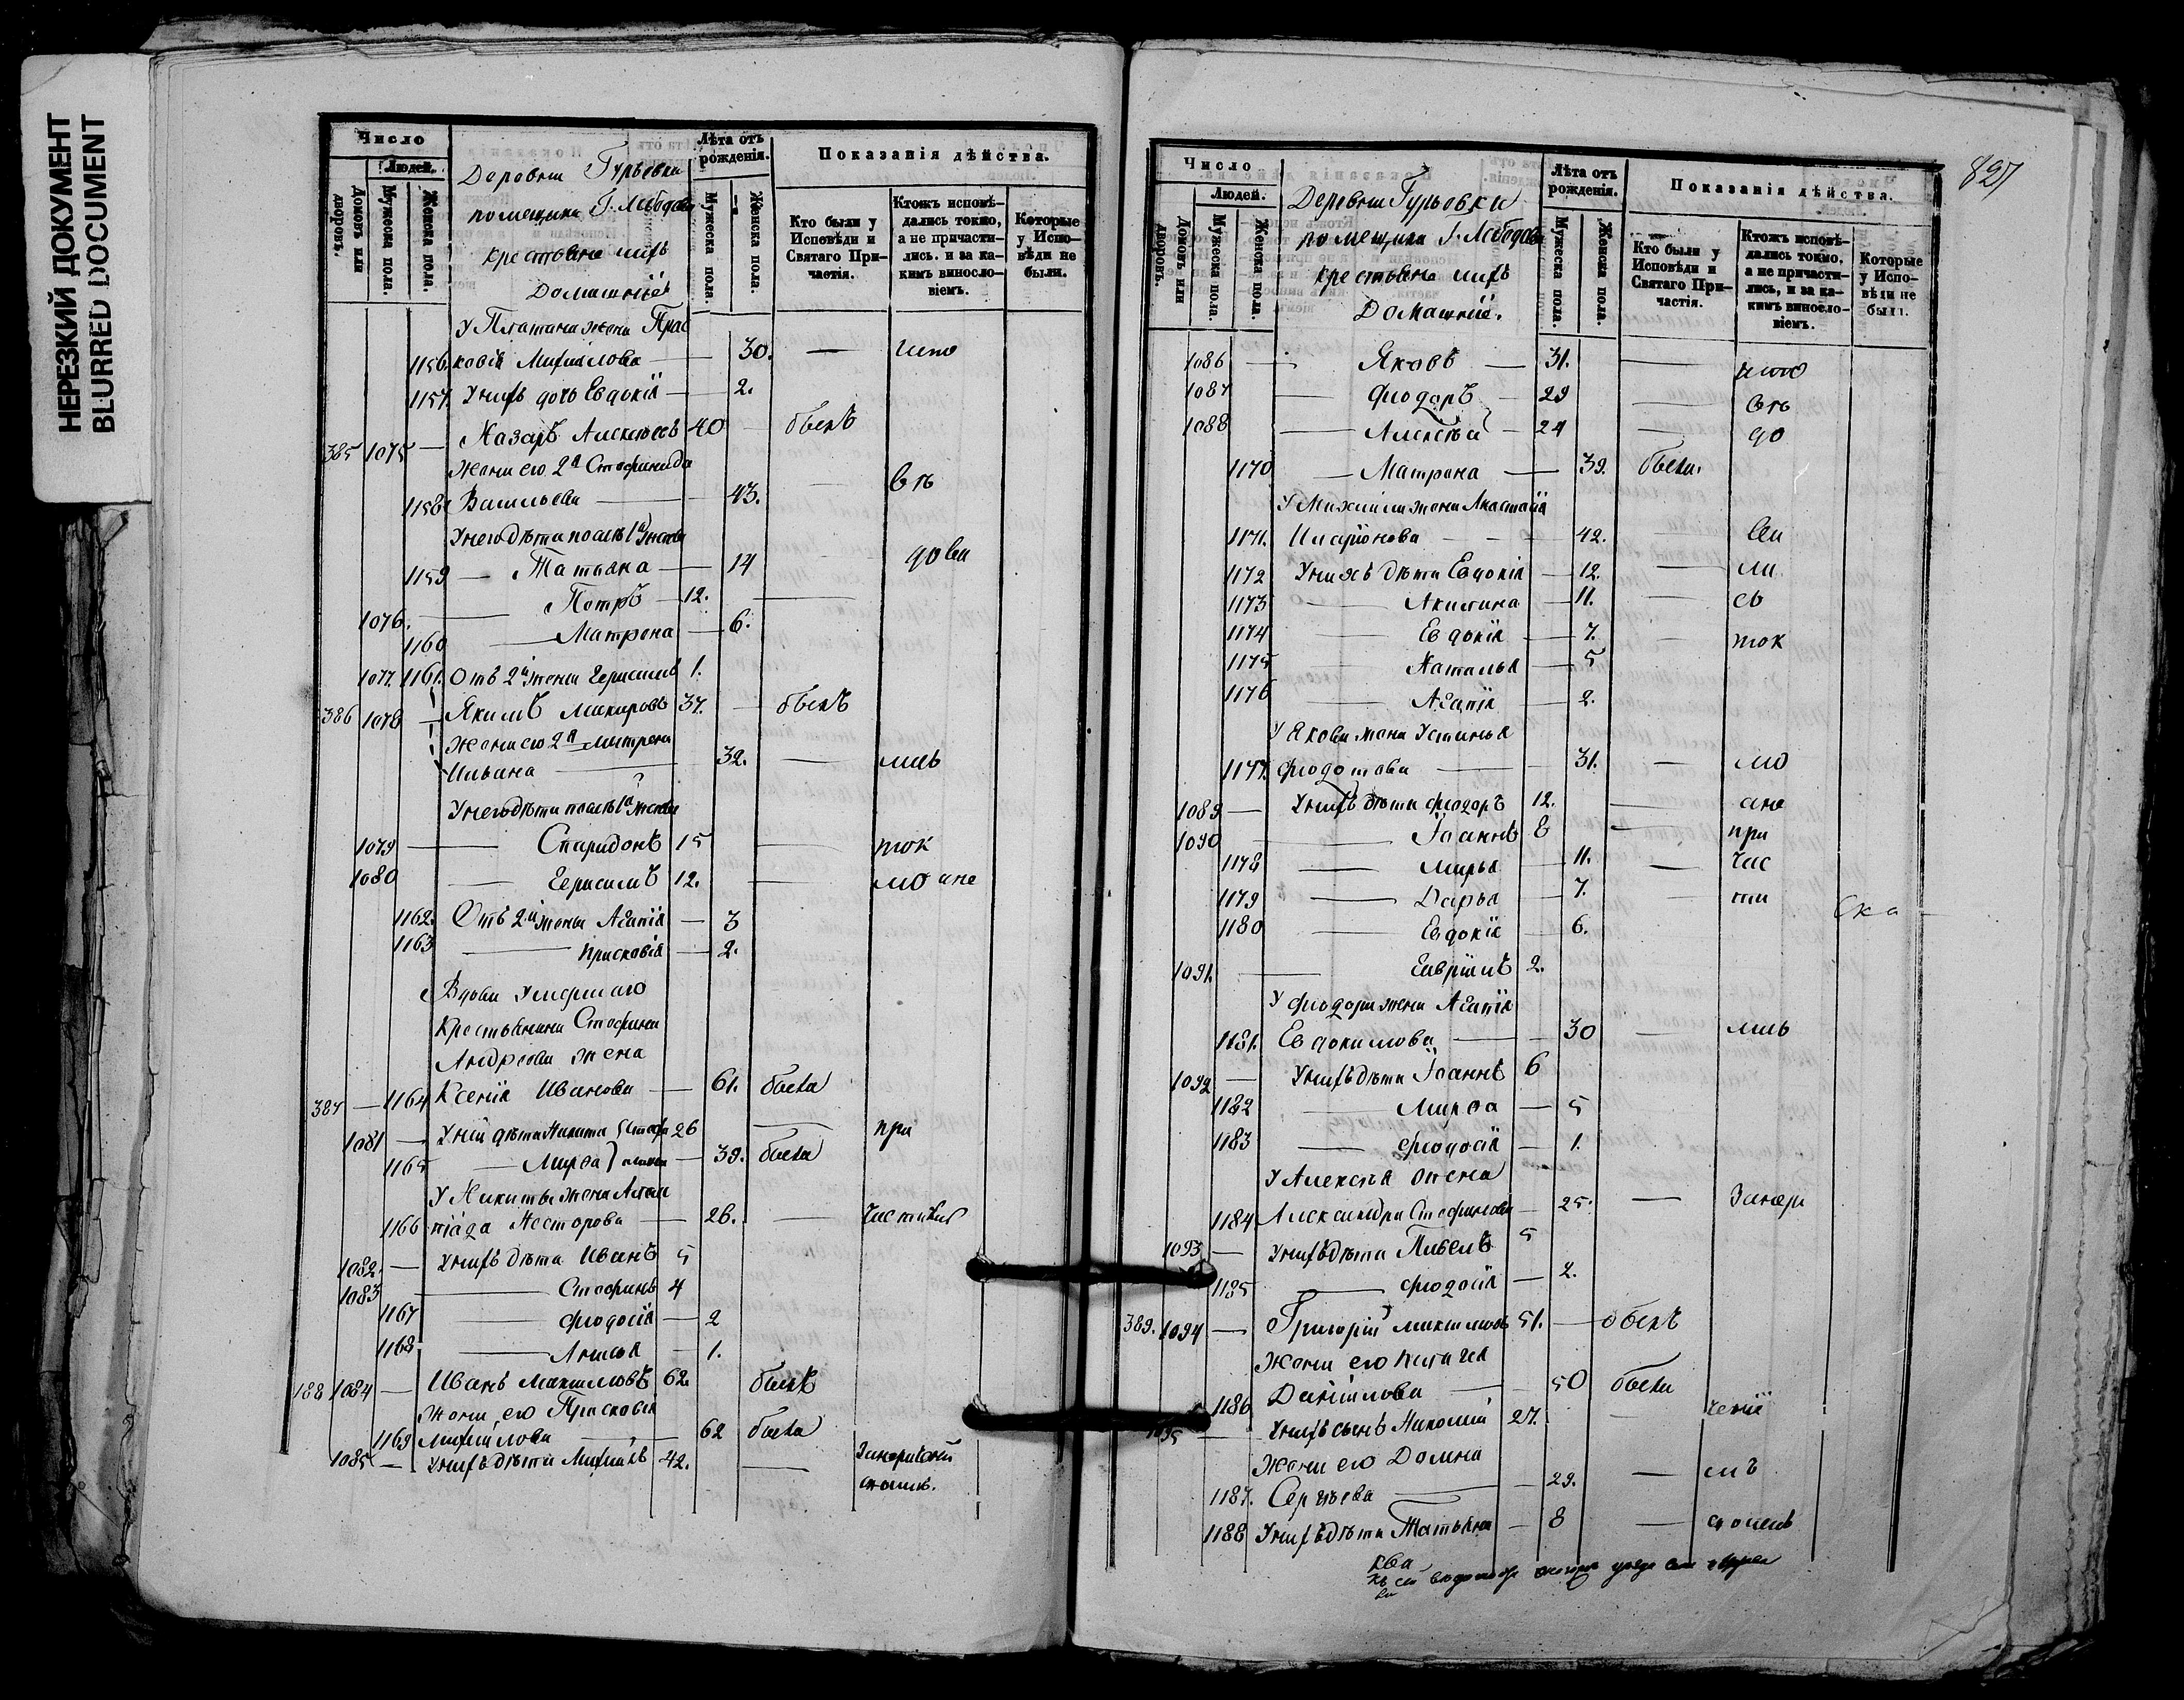 НЕРЕЗКИЙ ДОКУМЕНТ
BLURRED DOCUMENT
Число
Людей.
Домовъ или дворовъ.
Мужеска пола.
Женска пола.
Деревни Гурьевки
помещика Г. Лебедева
крестьяне и ихъ
Домашніе
Лѣта отъ рожденія.
Мужеска пола.
Женска пола.
Показанія дѣйства.
Кто были у Исповѣди и Святаго Причастія.
Ктожъ исповѣдались токмо, а не причастились. и за какимъ винословіемъ.
Которые у Исповѣди не были.
У Платона жена Прас
1156. ковія Михаилова — 30. — исто
1157. У нихъ дочь Евдокія — 2.
385 1075 — Назаръ Алексѣевъ 40 — былъ
Жена его 2я Стефанида
1158 Васильева — 43. — въ
У него дѣти послѣ 1й жены
1159 — Татьяна — 14 — дова
1076. — Петръ — 12. —
1160 — Матрона — 6.
1077. 1161. Отъ 2й жены Герасимъ 1.
386 1078 — Якимъ Макаровъ 37. — былъ
Жена его 2я Матрона
Ильина — 32. — лись
У него дѣти послѣ 1й жены
1079 — Спиридонъ 15 — ток
1080 — Герасимъ 12. — мо а не
1162. Отъ 2й жены Агапія — 3
1163 — Прасковія — 2.
Вдова умершаго
Крестьянина Стефана
Андреева жена
387 — 1164 Ксенія Иванова — 61. была
1081 — У ней дѣти Никита 26 — при
1165 — Марѳа — 39. была
У Никиты жена Агли
1166 піада Несторова — 26. — частилися
1082. — У нихъ дѣти Иванъ 5
1083 — Стефанъ 4
1167 — Ѳеодосія — 2
1168 — Анисья — 1.
188 1084 — Иванъ Максимовъ 62. былъ
Жена его Прасковія
1169 Михаилова — 62 была
1085 — У нихъ дѣти Михаилъ 42. —
827
Число
Людей.
Домовъ или дворовъ.
Мужеска пола.
Женска пола.
Деревни Гурьевки
помещика Г. Лебедева
крестьяне и ихъ
Домашніе.
Лѣта отъ рожденія.
Мужеска пола.
Женска пола.
Показанія дѣйства.
Кто были у Исповѣди и Святаго Причастія.
Ктожъ исповѣдались токмо, а не причастились, и за какимъ винословіемъ.
Которые у Исповѣди не были.
1086 — Яковъ — 31. —
1087 — Ѳеодоръ — 29 — вѣ
1088 — Алексѣй — 24 — до
1170 — Матрона — 39. была.
У Михаила жена Анастасія
1171. Иларіонова — 42. — ва
1172 У нихъ дѣти Евдокія — 12. — ли
1173 — Акилина — 11. — сь
1174 — Евдокія — 7. — ток
1175 — Наталья — 5
1176 — Агапія — 2.
У Якова жена Устинья
1177. Ѳеодотова — 31. — мо
1089 — У нихъ дѣти Ѳеодоръ 12. — а не
1090 — Іоаннъ 8 — при
1178 — Марья — 11. — час
1179 — Дарья — 7. — ти
1180 — Евдокія — 6.
1091. — Гавріилъ 2.
У Ѳеодора жена Агапія
1181. Евдокимова — 30 — лись
1092 — У нихъ дѣти Іоаннъ 6
1182 — Марѳа — 5
1183 — Ѳеодосія — 1.
У Алексѣя жена
1184 Александра Стефанова — 25. —
1093 — У нихъ дѣти Павелъ 5
1185 — Ѳеодосія — 2.
389. 1094 — Григорій Максимовъ 51. — былъ
Жена его Пелагія
1186 Даніилова — 50 была
1095 — У нихъ сынъ Николай 27. —
Жена его Домна
1187. Сергѣева — 29. —
1188 У нихъ дѣти Татьяна — 8 —